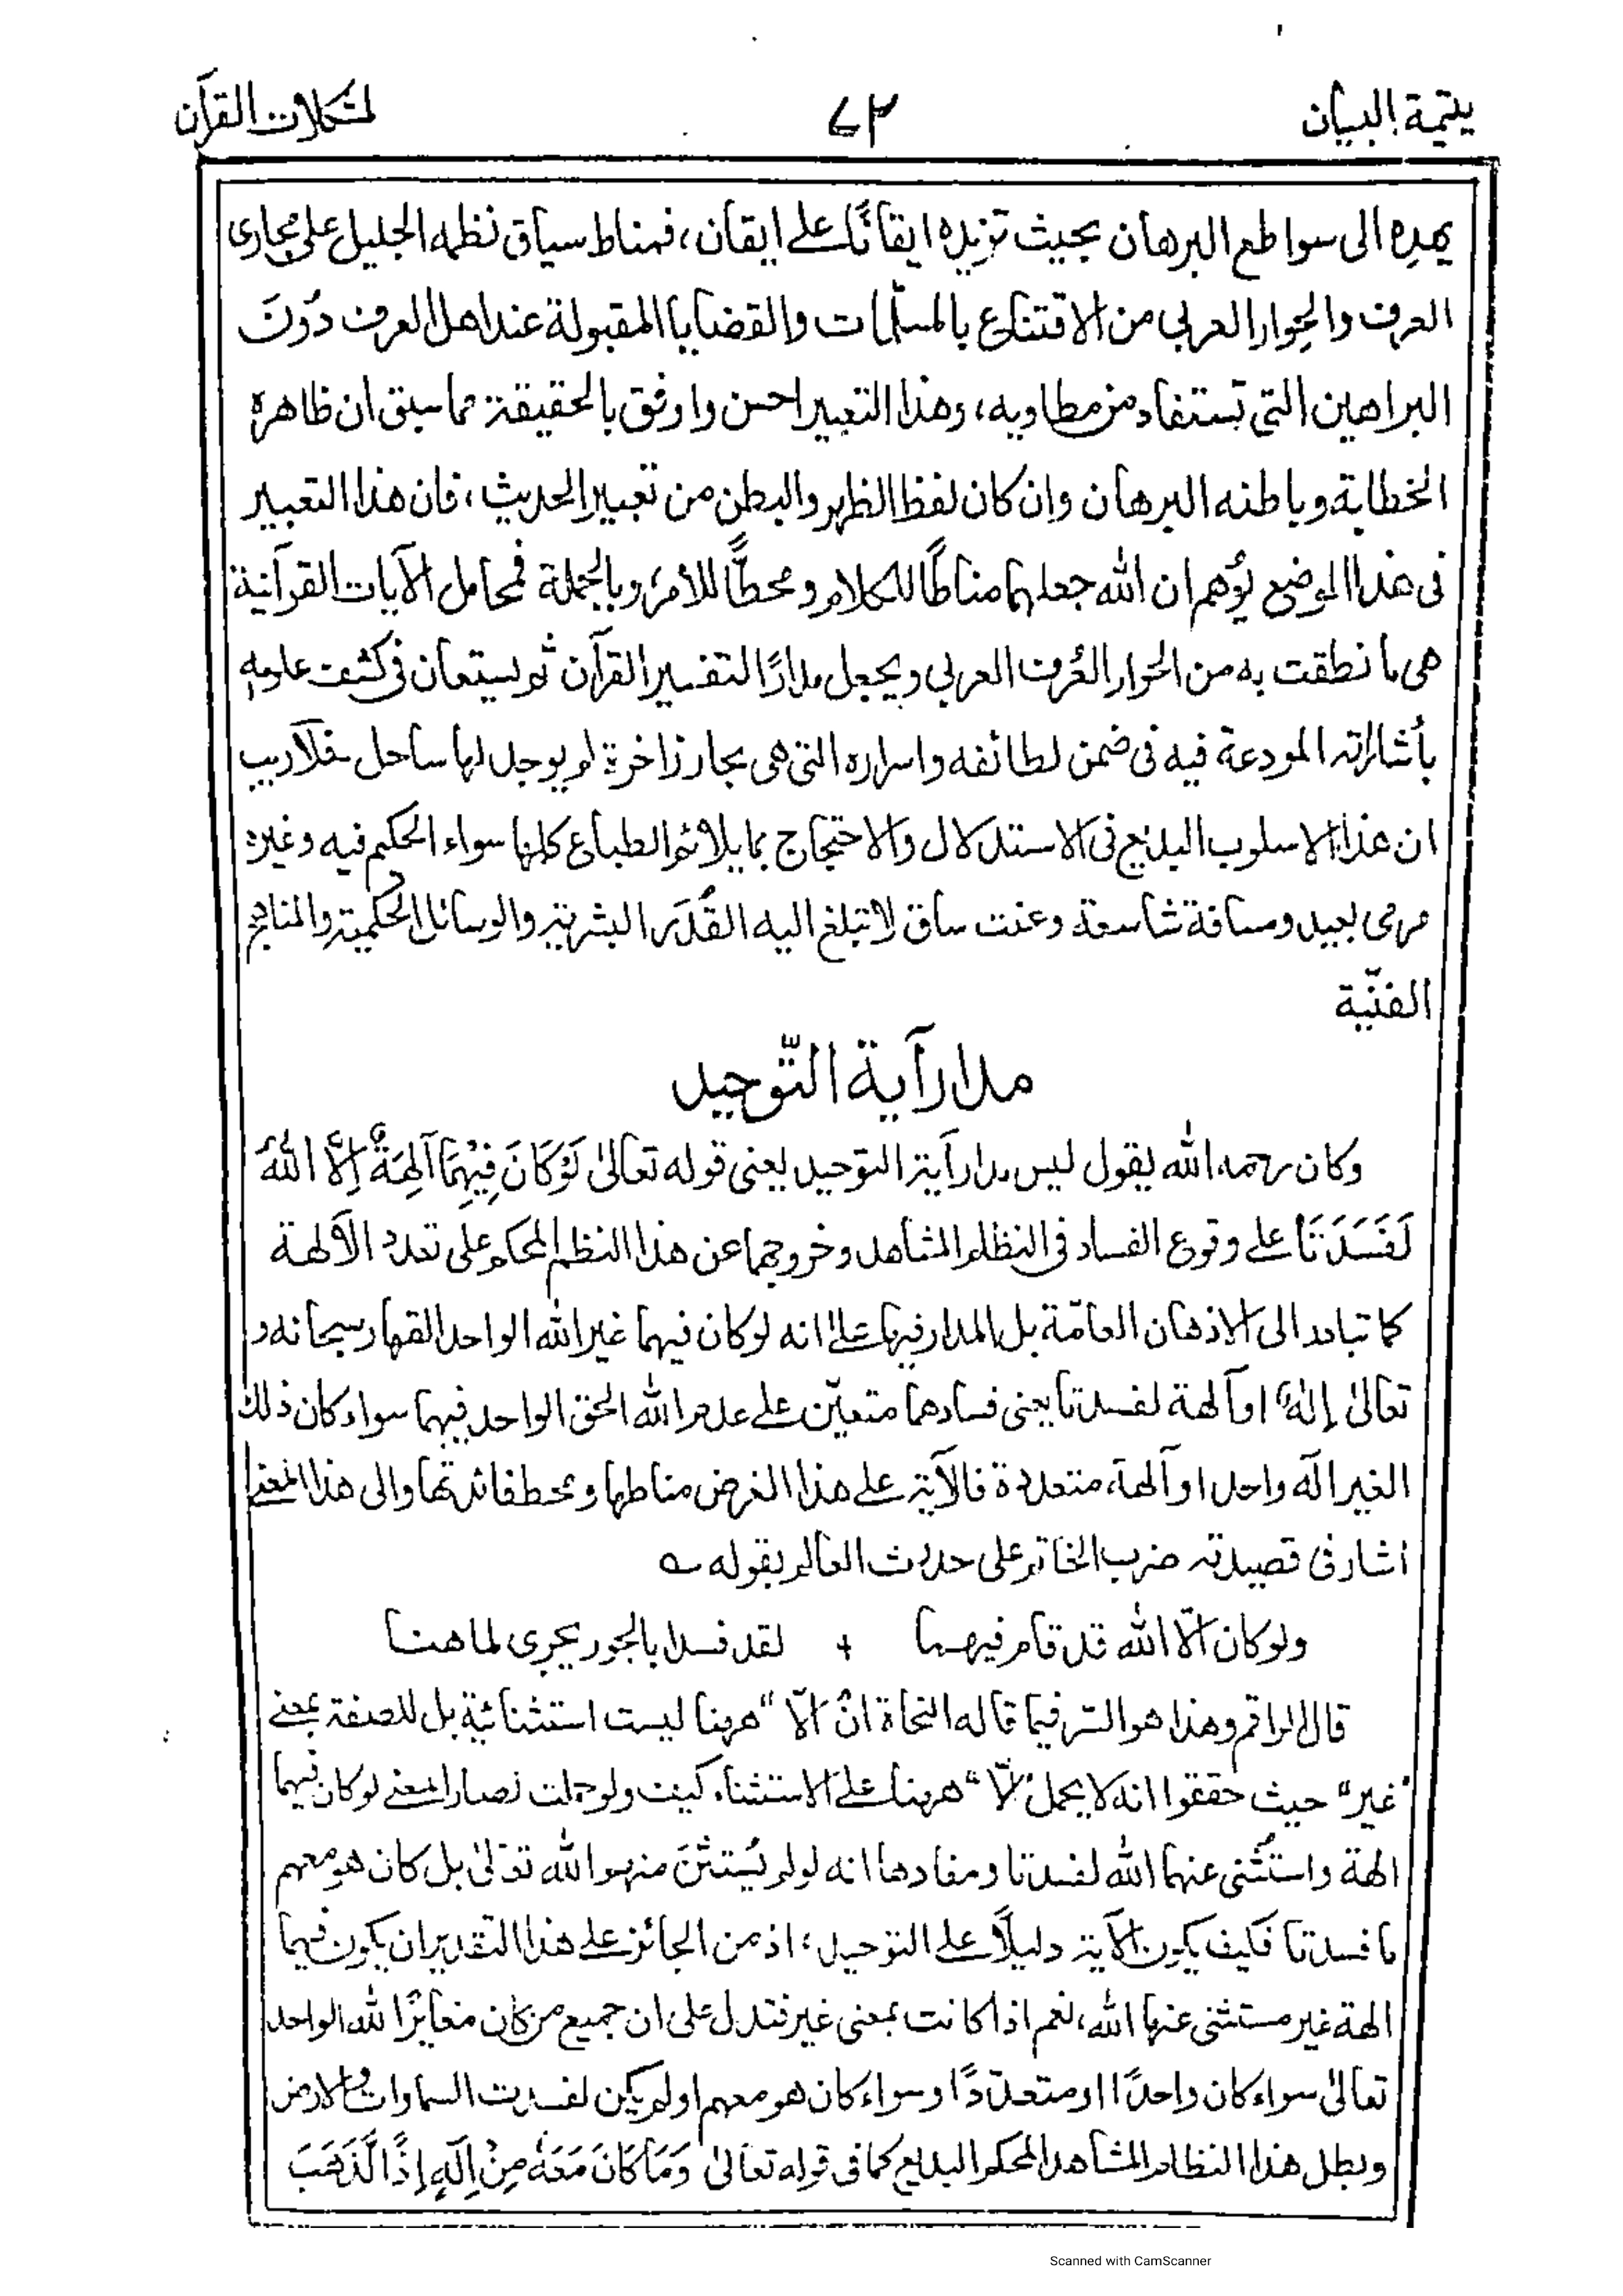 يتيمة البيان
٧٣
لمشكلات القرآن
يهدِه الى سواطع البرهان بحيث تزيده ايقانًا على ايقان، فمناط سياق نظمه الجليل على مجارى
العرف والحِوار العربي من الاقتناع بالمسلّمات والقضايا المقبولة عند اهل العرف دُونَ
البراهين التي تستفاد من مطاويه، وهذا التعبير احسن واوفق بالحقيقة مما سبق ان ظاهره
الخطابة وباطنه البرهان وان كان لفظ الظهر والبطن من تعبير الحديث، فان هذا التعبير
فى هذا الموضع يُوهم ان الله جعلهما مناطًا للكلام ومحطًّا للأمر، وبالجملة فمحامل الآيات القرآنية
هى ما نطقت به من الحوار العُرف العربي ويجعل مدارًا لتفسير القرآن ثم يستعان فى كشف علومه
بأشاراته المودعة فيه فى ضمن لطائفه واسراره التى هى بحار زاخرة لم يوجد لها ساحل فلا ريب
ان هذا الاسلوب البديع فى الاستدلال والاحتجاج بما يلائم الطباع كلها سواء الحكيم فيه وغيره
مرمى بعيد ومسافة شاسعة وعنت ساق لا تبلغ اليه القُدَر البشرية والوسائل الحكمية والمناهج
الفنّية
مدار آية التّوحيد
وكان رحمه الله يقول ليس مدار آية التوحيد يعنى قوله تعالىٰ لَوْ كَانَ فِيْهِمَا آلِهَةٌ إِلَّا اللهُ
لَفَسَدَتَا على وقوع الفساد فى النظام المشاهد وخروجهما عن هذا النظم المحكم على تعدد الآلهة
كما تبادر الى الاذهان العامّة بل المدار فيها على انه لو كان فيهما غير الله الواحد القهار سبحانه و
تعالىٰ إلٰهٌ او آلهة لفسدتا يعنى فسادهما متعيّن على عدم الله الحق الواحد فيهما سواء كان ذلك
الغير الٓه واحد او آلهة متعددة فالآية على هذا الغرض مناطها ومحط فائدتها والى هذا المعنى
اشار فى قصيدته ضرب الخاتم على حدوث العالم بقوله ؎
ولو كان الّا الله قد قام فيهما + لقد فسدا بالجور يجرى لما هنا
قال الراقم وهذا هو السّر فيما قاله النحاة انّ "الّا" ههنا ليست استثنائية بل للصفة بمعنى
"غير" حيث حققوا انه لا يحمل "الّا" ههنا على الاستثناء، كيف ولو حملت لصار المعنى لو كان فيهما
الهة واستُثنى عنهما الله لفسدتا ومفادها انه لو لم يُستثنَ منهم الله تعالىٰ بل كان هو معهم
ما فسدتا فكيف يكون الآية دليلًا على التوحيد، اذ من الجائز على هذا التقدير ان يكون فيهما
الهة غير مستثنى عنها الله، نعم اذا كانت بمعنى غير فتدل على ان جميع من كان مغايرًا لله الواحد
تعالىٰ سواء كان واحدًا او متعدّدًا وسواء كان هو معهم او لم يكن لفسدت السماوات والارض
وبطل هذا النظام المشاهد المحكم البديع كما فى قوله تعالىٰ وَمَا كَانَ مَعَهٗ مِنْ اِلٓهٍ إِذًا لَّذَهَبَ
Scanned with CamScanner